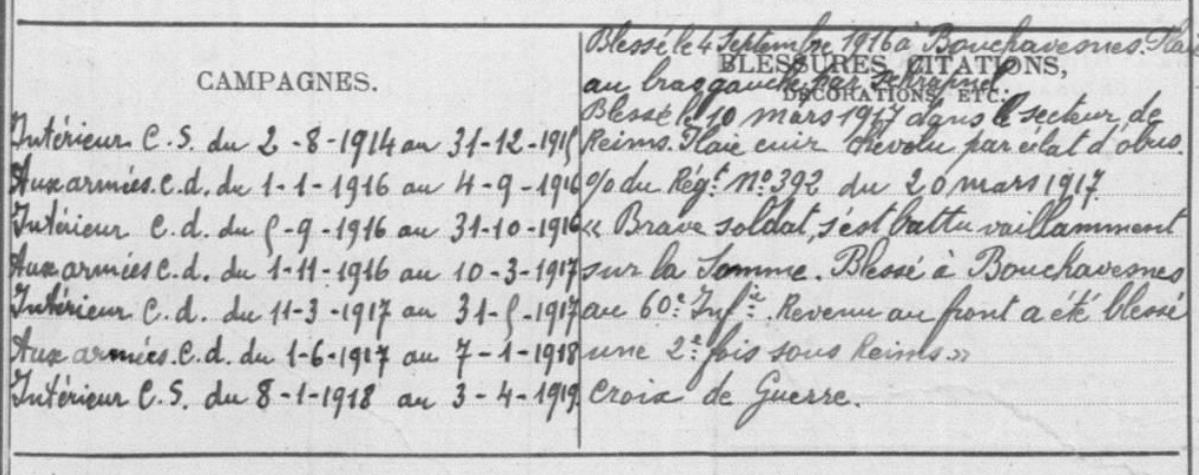 CAMPAGNES.
Intérieur C.S. du 2-8-1914 au 31-12-1915
Aux armées.C.d. du 1-1-1916 au 4-9-1916
Intérieur C.d. du 5-9-1916 au 31-10-1916
Aux armées C.d. du 1-11-1916 au 10-3-1917
Intérieur C.d. du 11-3-1917 au 31-5-1917
Aux armées.C.d. du 1-6-1917 au 7-1-1918
Intérieur C.S. du 8-1-1918 au 3-4-1919
Blessé le 4 Septembre 1916 à Bouchavesnes. Plaie
BLESSURES, CITATIONS,
au bras gauche par schrapnel
DÉCORATIONS, ETC.
Blessé le 10 mars 1917 dans le secteur de
Reims. Plaie cuir chevelu par éclat d'obus.
%du Régt. No.392 du 20 mars 1917
« Brave soldat, s'est battu vaillamment
sur la Somme. Blessé à Bouchavesnes
au 60e. Infie. Revenu au front a été blessé
une 2e. fois sous Reims»
Croix de Guerre.